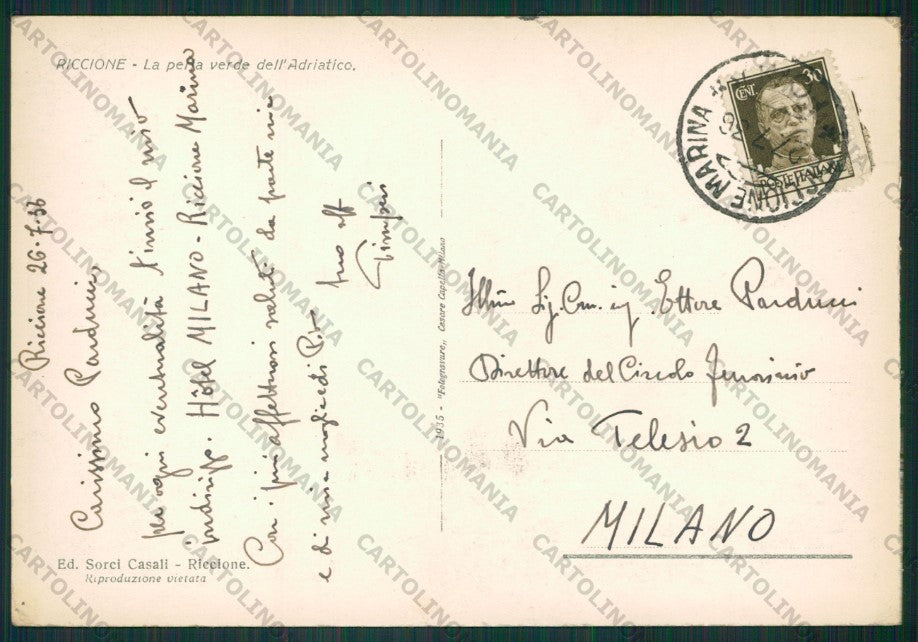 RICCIONE - La perla verde dell'Adriatico.
Riccione 26.7.36
Carissimo Parducci
per ogni eventualità t'invio il mio
indirizzo. Hôtel MILANO - Riccione Marina
Con i più affettuosi saluti da parte mia
e di mia moglie
tuo aff
Ed. Sorci Casali - Riccione.
Riproduzione vietata
1935 - "Fotogravure" Cesare Capello-Milano
CENT 30
POSTE ITALIANE
RICCIONE MARINA
Ettore Parducci
Direttore del Circolo
Via Telesio 2
MILANO
CARTOLINOMANIA